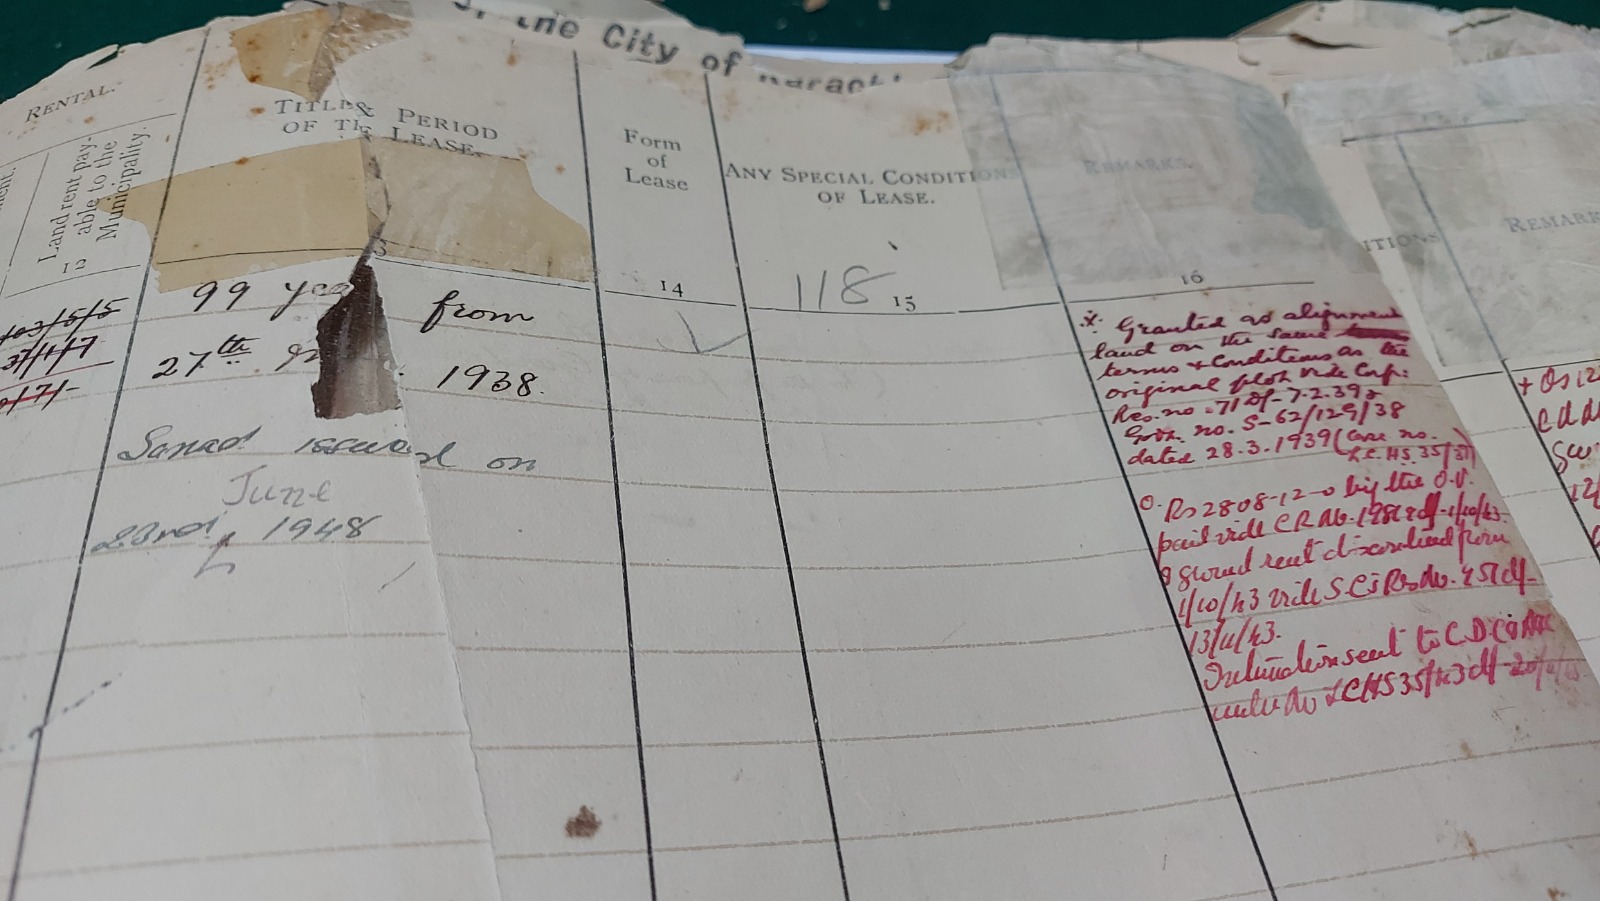 the City of
RENTAL.
Land rent pay-
able to the
Municipality.
12
TITLE & PERIOD
OF THE LEASE.
3
Form
of
Lease
14
ANY SPECIAL CONDITIONS
OF LEASE.
118 15
REMARKS.
16
ITIONS
REMARK
103/5/5
37/1/7
99 from
27th 1938.
Sanad issued on
June
23rd 1948
Granted as alignment
land on the same
terms & conditions as the
original plot vide Corp:
Res. no. 71 df- 7.2.39 &
Govt. no. S-62/129/38
dated 28.3.1939 (Case no.
L.C.HS. 35/37)
Rs 2808-12-0 by the O.V.
paid vide C R No. df-1/10/43.
& ground rent from
1/10/43 vide S.C's Res No. 451 df-
13/11/43.
Intimation sent to
under No LCHS 35/43 df-